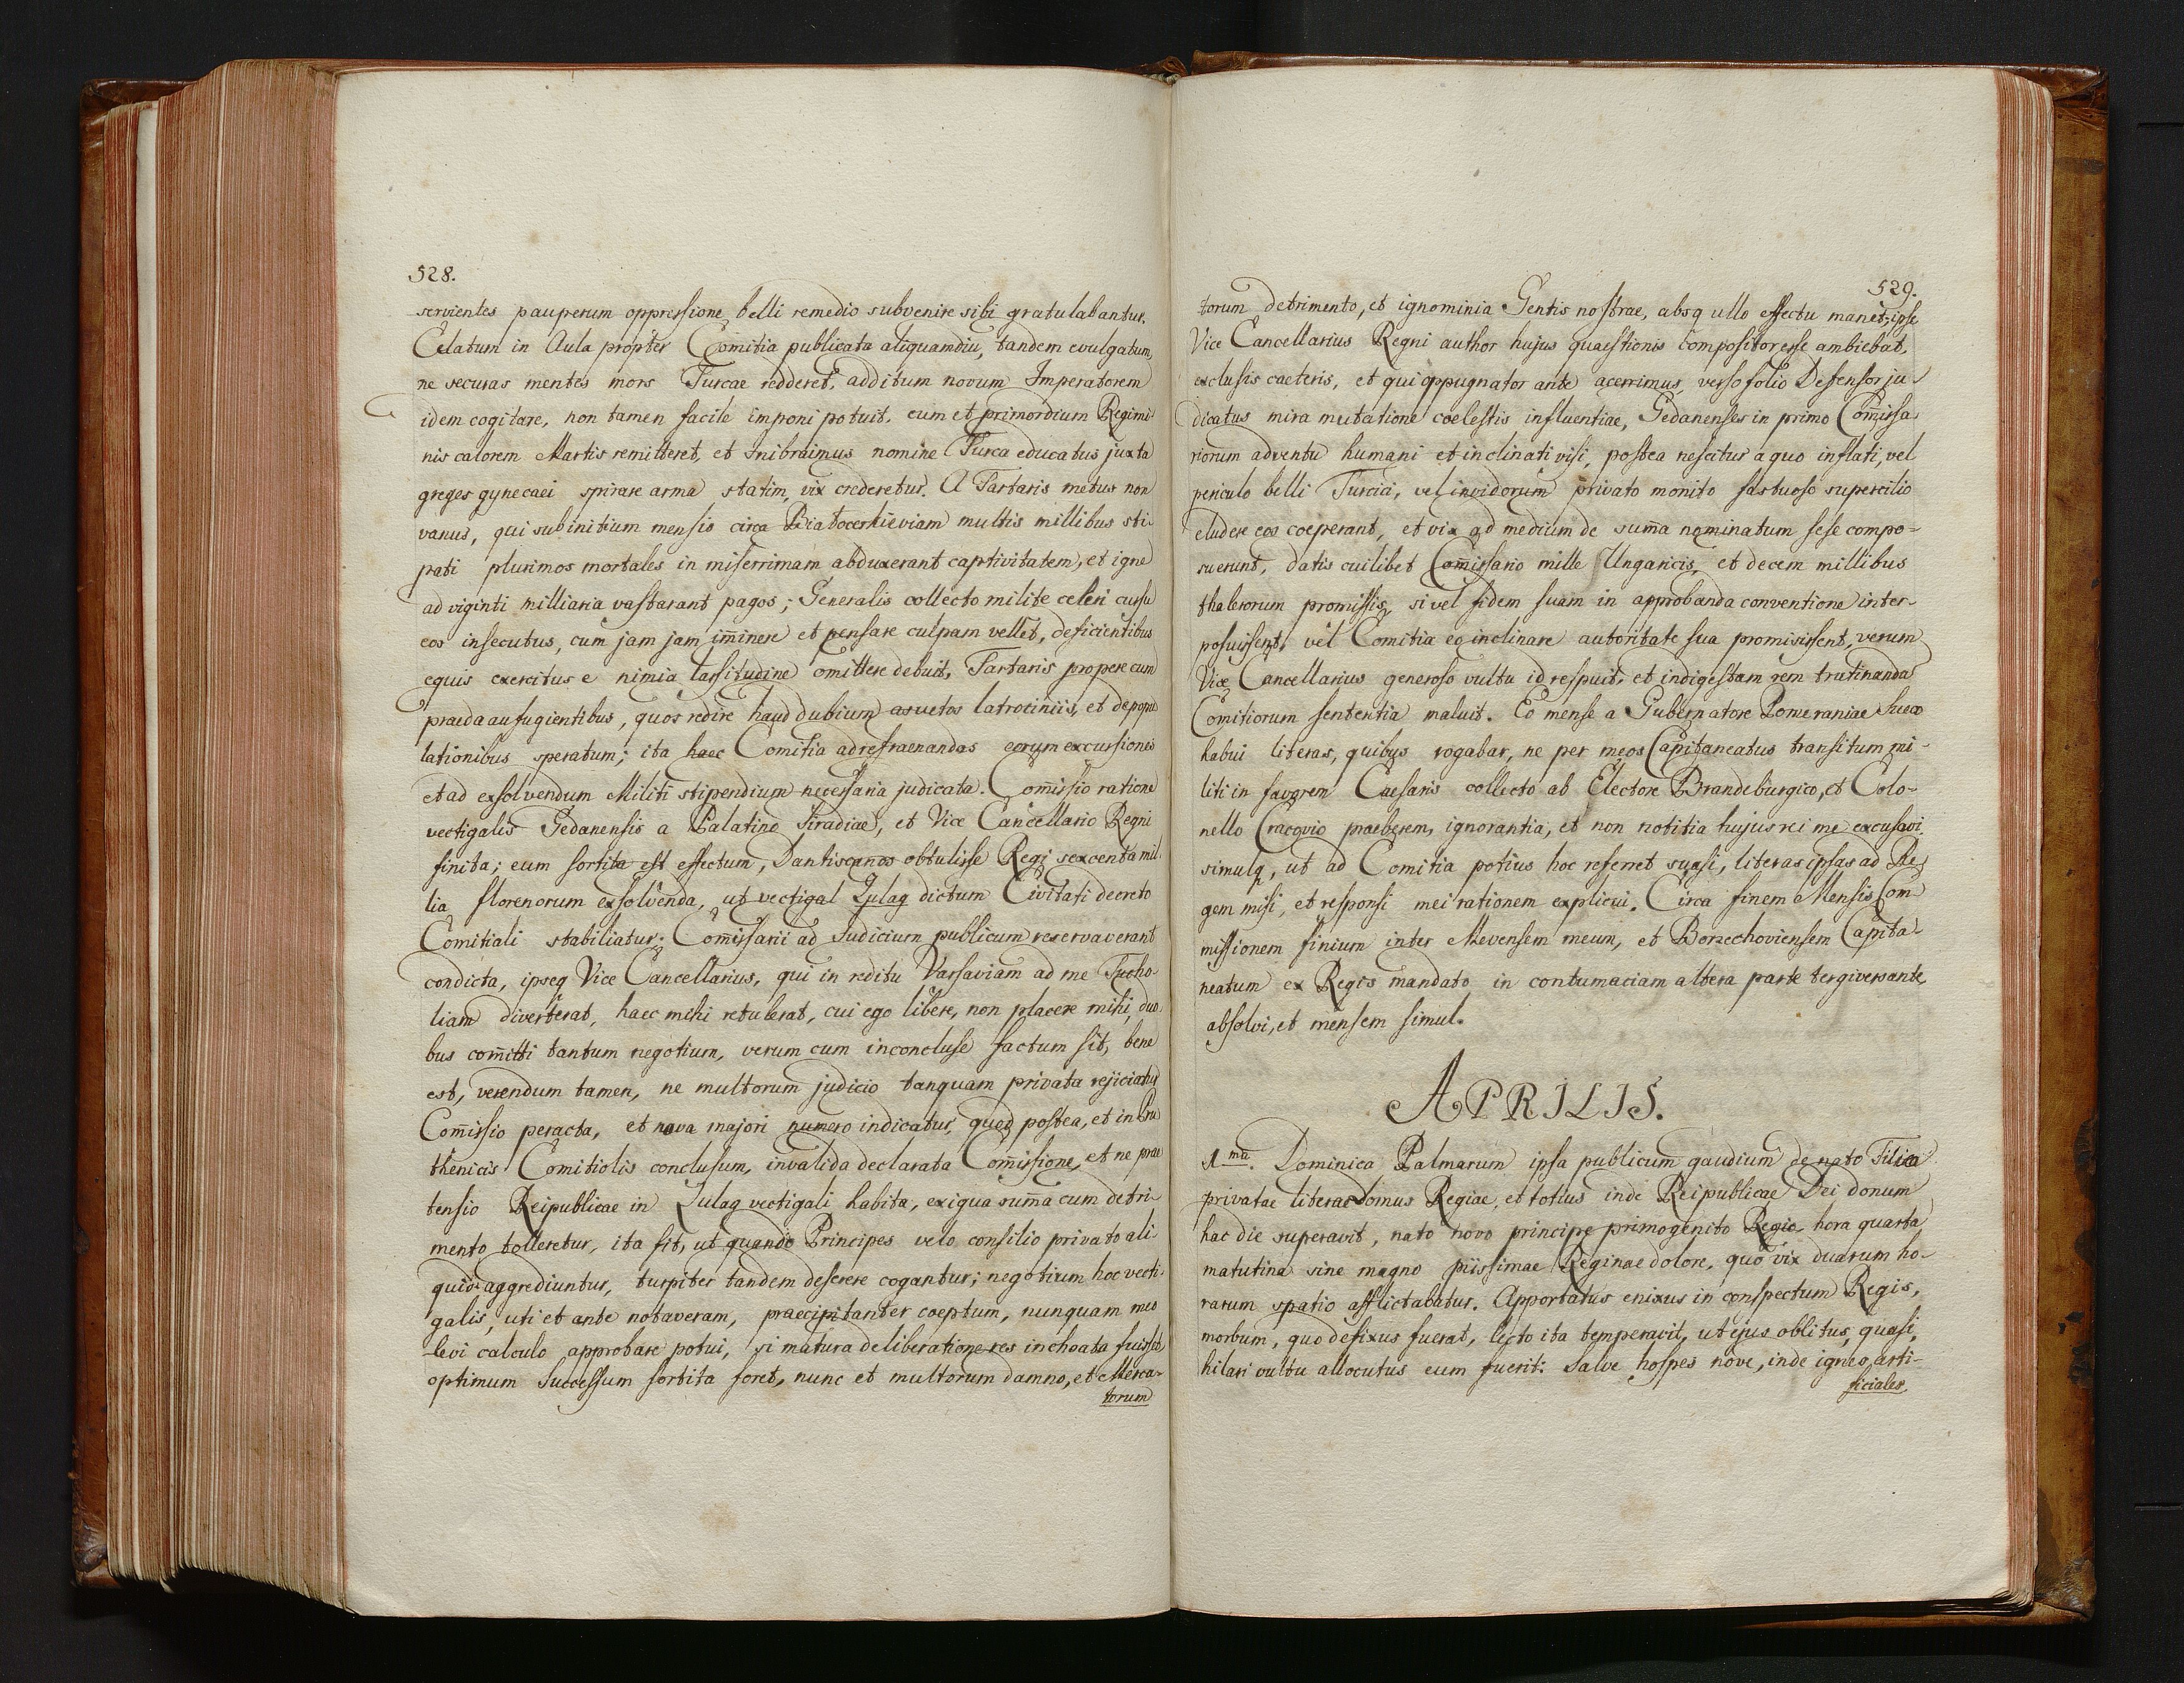 528.
servientes pauperum oppressione belli remedio subvenire sibi gratulabantur.
Celatum in Aula propter Comitia publicata aliquamdiu, tandem evulgatum,
ne securas mentes mors Turcae redderet, additum novum Imperatorem
idem cogitare, non tamen facile imponi potuit, cum et primordium Regimi-
nis calorem Martis remitteret, et Inibraimus nomine Turca educatus juxta
greges gynecaei spirare arma statim, vix crederetur. A Tartaris metus non
vanus, qui sub initium mensis circa Biatocerkieviam multis millibus sti-
pati plurimos mortales in miserrimam abduxerant captivitatem, et igne
ad viginti milliaria vastarant pagos; Generalis collecto milite celeri cursu
eos insecutus, cum jam jam im̄inere et pensare culpam vellet, deficientibus
equis exercitus e nimia lassitudine omittere debuit, Tartaris propere cum
praeda aufugientibus, quos redire haud dubium asvetos latrociniis, et depopu
lationibus speratum; ita haec Comitia ad refraenandas eorum excursiones
et ad exsolvendum Militi stipendium necessaria judicata. Com̄issio ratione
vectigalis Gedanensis a Palatino Siradiae, et Vice Cancellario Regni
finita; eum sortita est effectum, Dantiscanos obtulisse Regi sexcenta mil-
lia florenorum exsolvenda, ut vectigal Zulag dictum Civitati decreto
Comitiali stabiliatur; Com̄issarii ad Judicium publicum reservaverant
condicta, ipseq Vice Cancellarius, qui in reditu Varsaviam ad me Tucho-
liam diverterat, haec mihi retulerat, cui ego libere, non placere mihi, duo
bus com̄itti tantum negotium, verum cum inconcluse factum sit, bene
est, verendum tamen, ne multorum judicio tanquam privata rejiciatur
Com̄issio peracta, et nova majori numero indicatur, quod postea, et in Pru
thenicis Comitiolis conclusum, invalida declarata Com̄issione, et ne prae
tensio Reipublicae in Zulag vectigali habita, exigua sum̄a cum detri-
mento tolleretur, ita fit, ut quando Principes velo consilio privato ali-
quid aggrediuntur, turpiter tandem deserere cogantur; negotium hoc vecti-
galis, uti et ante notaveram, praecipitanter coeptum, nunquam meo
levi calculo approbare potui, si matura deliberatione res inchoata fuisset,
optimum Successum sortita foret, nunc et multorum damno, et Merca-
torum
529.
torum detrimento, et ignominia Gentis nostrae, absq ullo effectu manet; ipse
Vice Cancellarius Regni author hujus quaestionis compositor esse ambiebat,
exclusis caeteris, et qui oppugnator ante acerrimus, verso folio Defensor ju-
dicatus mira mutatione coelestis influentiae, Gedanenses in primo Com̄issa
riorum adventu humani et inclinati visi, postea nescitur a quo inflati, vel
periculo belli Turcici, vel invidorum privato monito fastuoso supercilio
eludere eos coeperant, et vix ad medium de sum̄a nominatum sese compo-
suerunt, datis cuilibet Com̄issario mille Ungaricis, et decem millibus
thalerorum promissis, si vel fidem suam in approbanda conventione inter-
posuissent, vel Comitia eo inclinare autoritate sua promisissent, verum
Vice Cancellarius generoso vultu id respuit, et indigestam rem trutinanda
Comitiorum sententia maluit. Eo mense a Gubernatore Pomeraniae Sueco
habui literas, quibus rogabar, ne per meos Capitaneatus transitum mi-
liti in favorem Caesaris collecto ab Electore Brandeburgico, et Colo-
nello Cracovio praeberem, ignorantia, et non notitia hujus rei me excusavi,
simulq, ut ad Comitia potius hoc referret suasi, literas ipsas ad Re
gem misi, et responsi mei rationem explicui. Circa finem Mensis Com
missionem finium inter Mevensem meum, et Borzechoviensem Capita-
neatum ex Regis mandato in contumaciam altera parte tergiversante,
absolvi, et mensem simul.
APRILIS.
1ma. Dominica Palmarum ipsa publicum gaudium de nato Filio
privatae literae Domus Regiae, et totius inde Reipublicae Dei donum
hac die superavit, nato novo principe primogenito Regio hora quarta
matutina sine magno piissimae Reginae dolore, quo vix duarum ho-
rarum spatio afflictabatur. Apportatus enixus in conspectum Regis,
morbum, quo defixus fuerat, lecto ita temperavit, ut ejus oblitus, quasi,
hilari vultu allocutus eum fuerit: Salve hospes nove, inde igneo, arti-
ficiales.